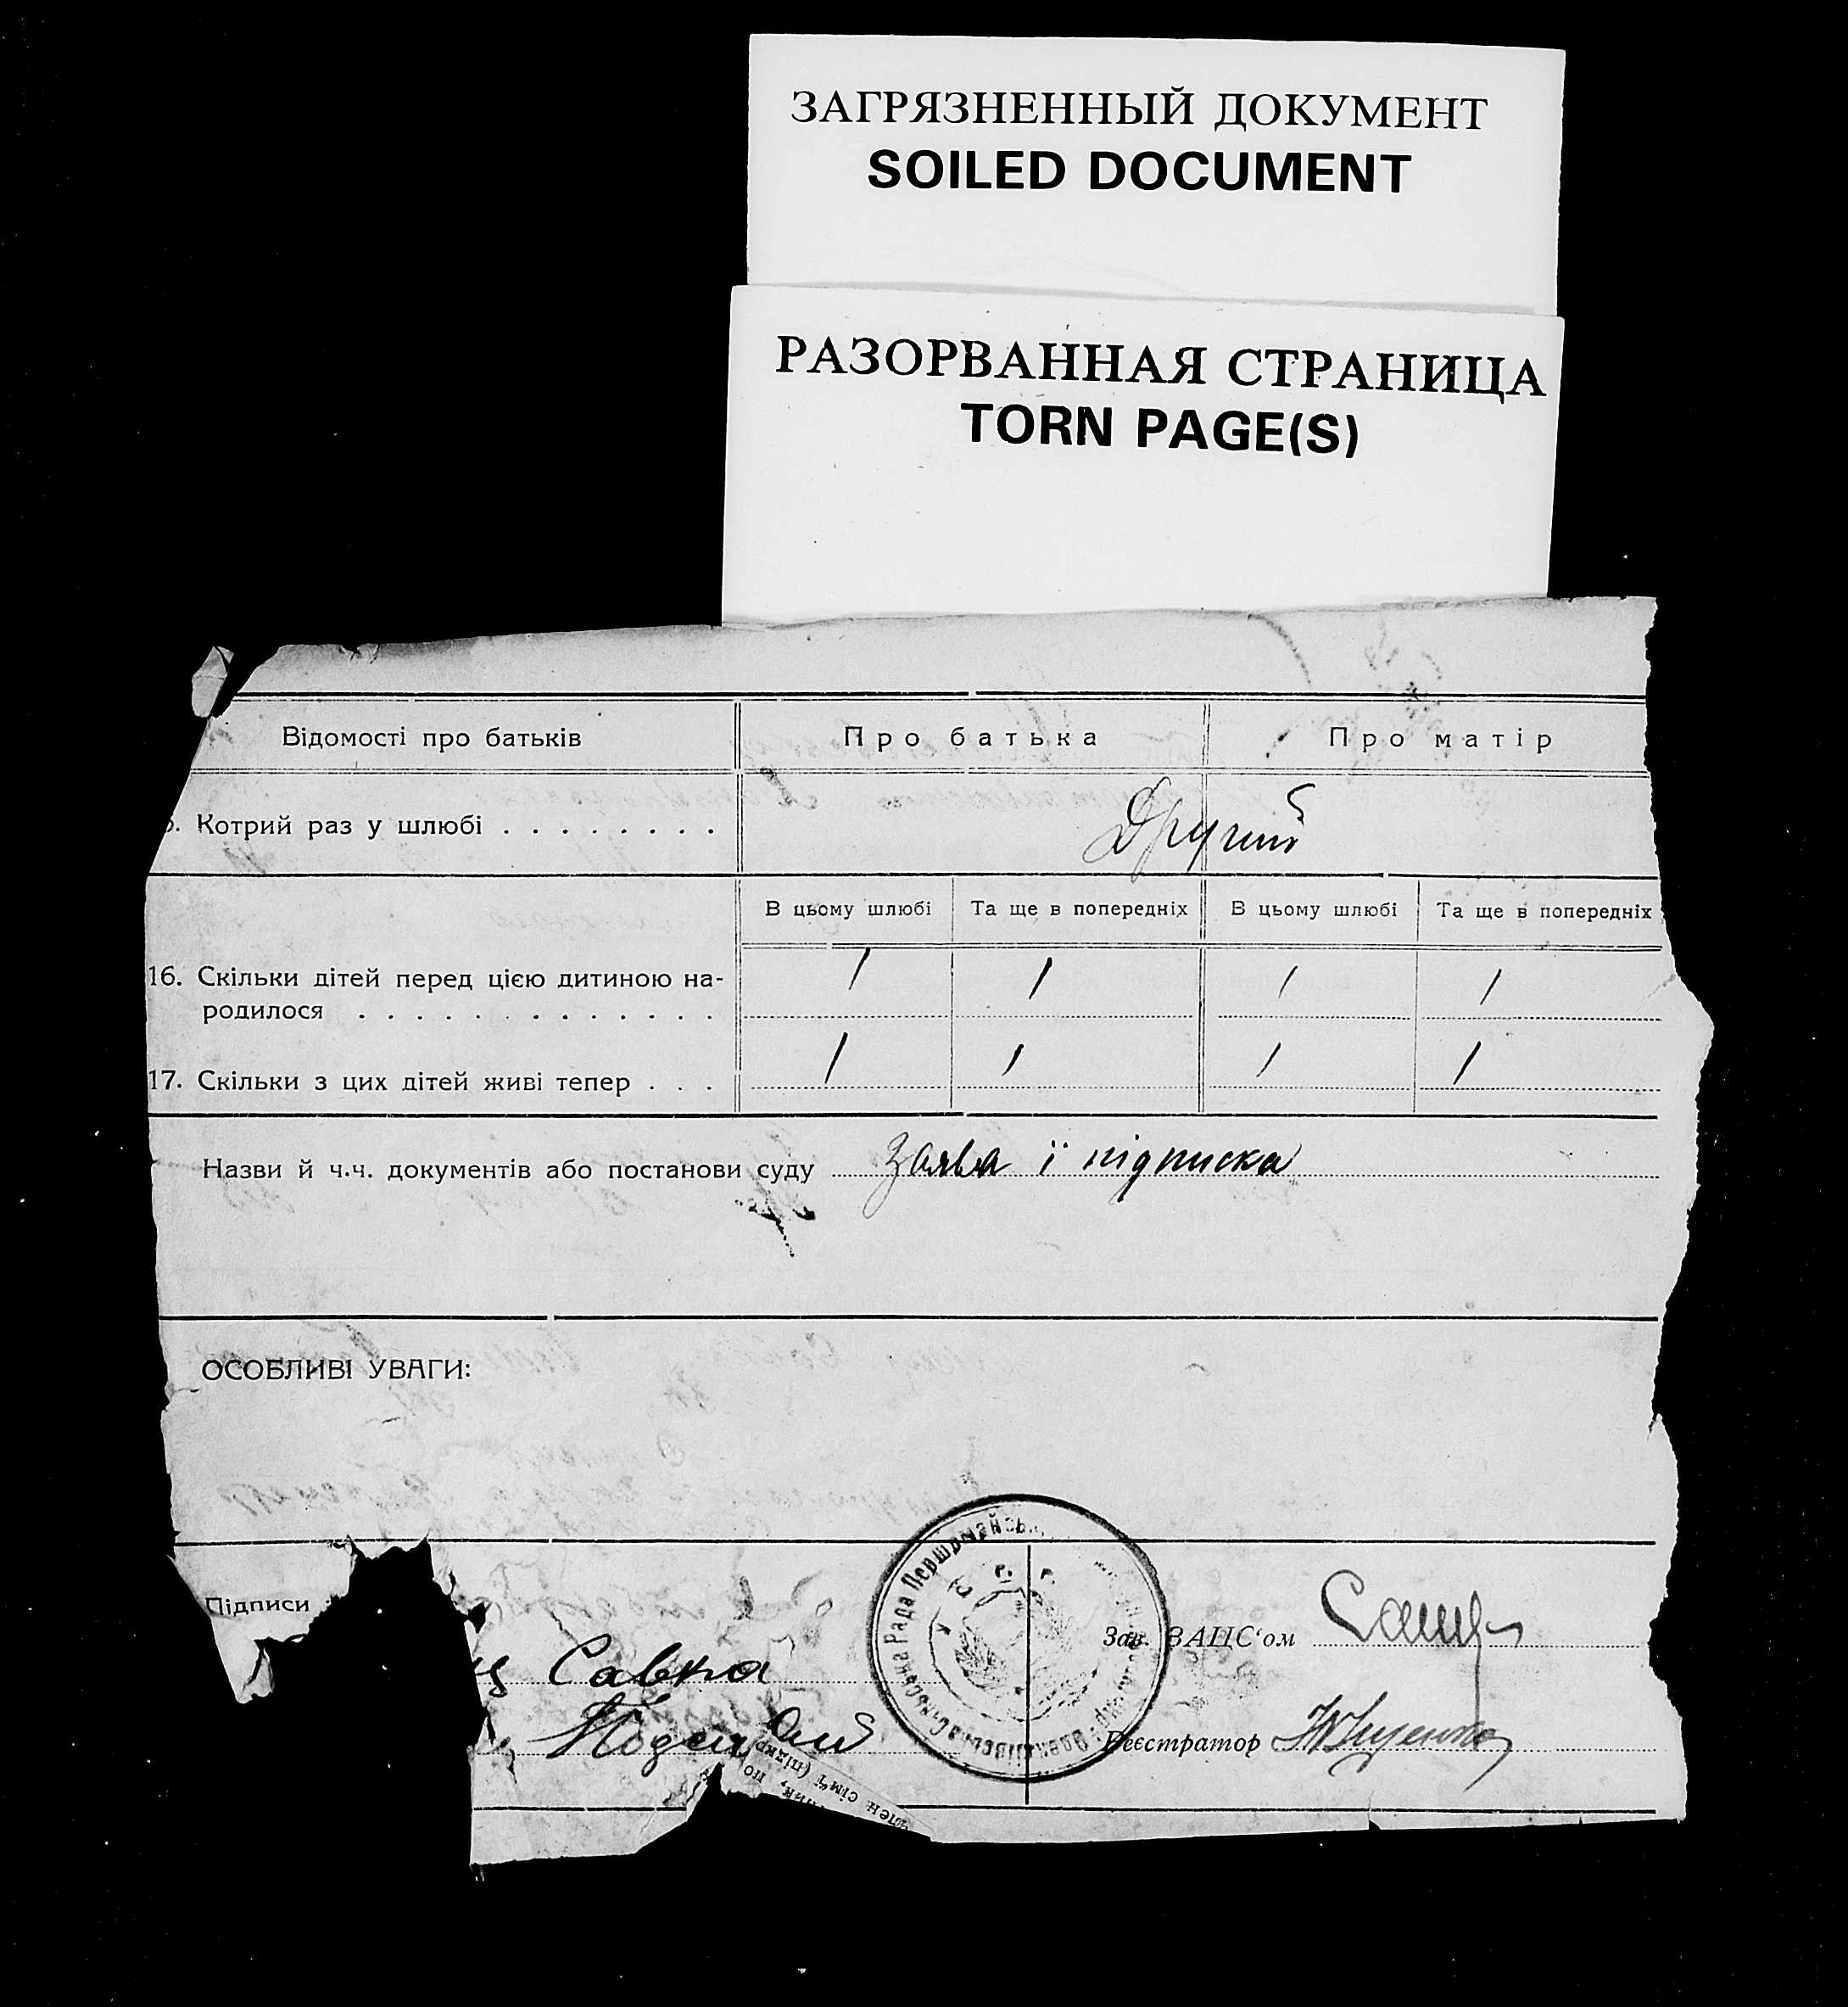 ЗАГРЯЗНЕННЫЙ ДОКУМЕНТ
SOILED DOCUMENT
РАЗОРВАННАЯ СТРАНИЦА
TORN PAGE(S)
Відомості про батьків Про батька Про матір
Котрий раз у шлюбі . . . . . . . . Другий
В цьому шлюбі Та ще в попередніх В цьому шлюбі Та ще в попередніх
16. Скільки дітей перед цією дитиною на- 1 1 1 1
родилося . . . . . . . . . . . . .
17. Скільки з цих дітей живі тепер . . . 1 1 1 1
Назви й ч.ч. документів або постанови суду Заява ї підписка
ОСОБЛИВІ УВАГИ:
Підписи
Зав. ЗАЦС‘ом
Савка
Реєстратор
Сільська Рада